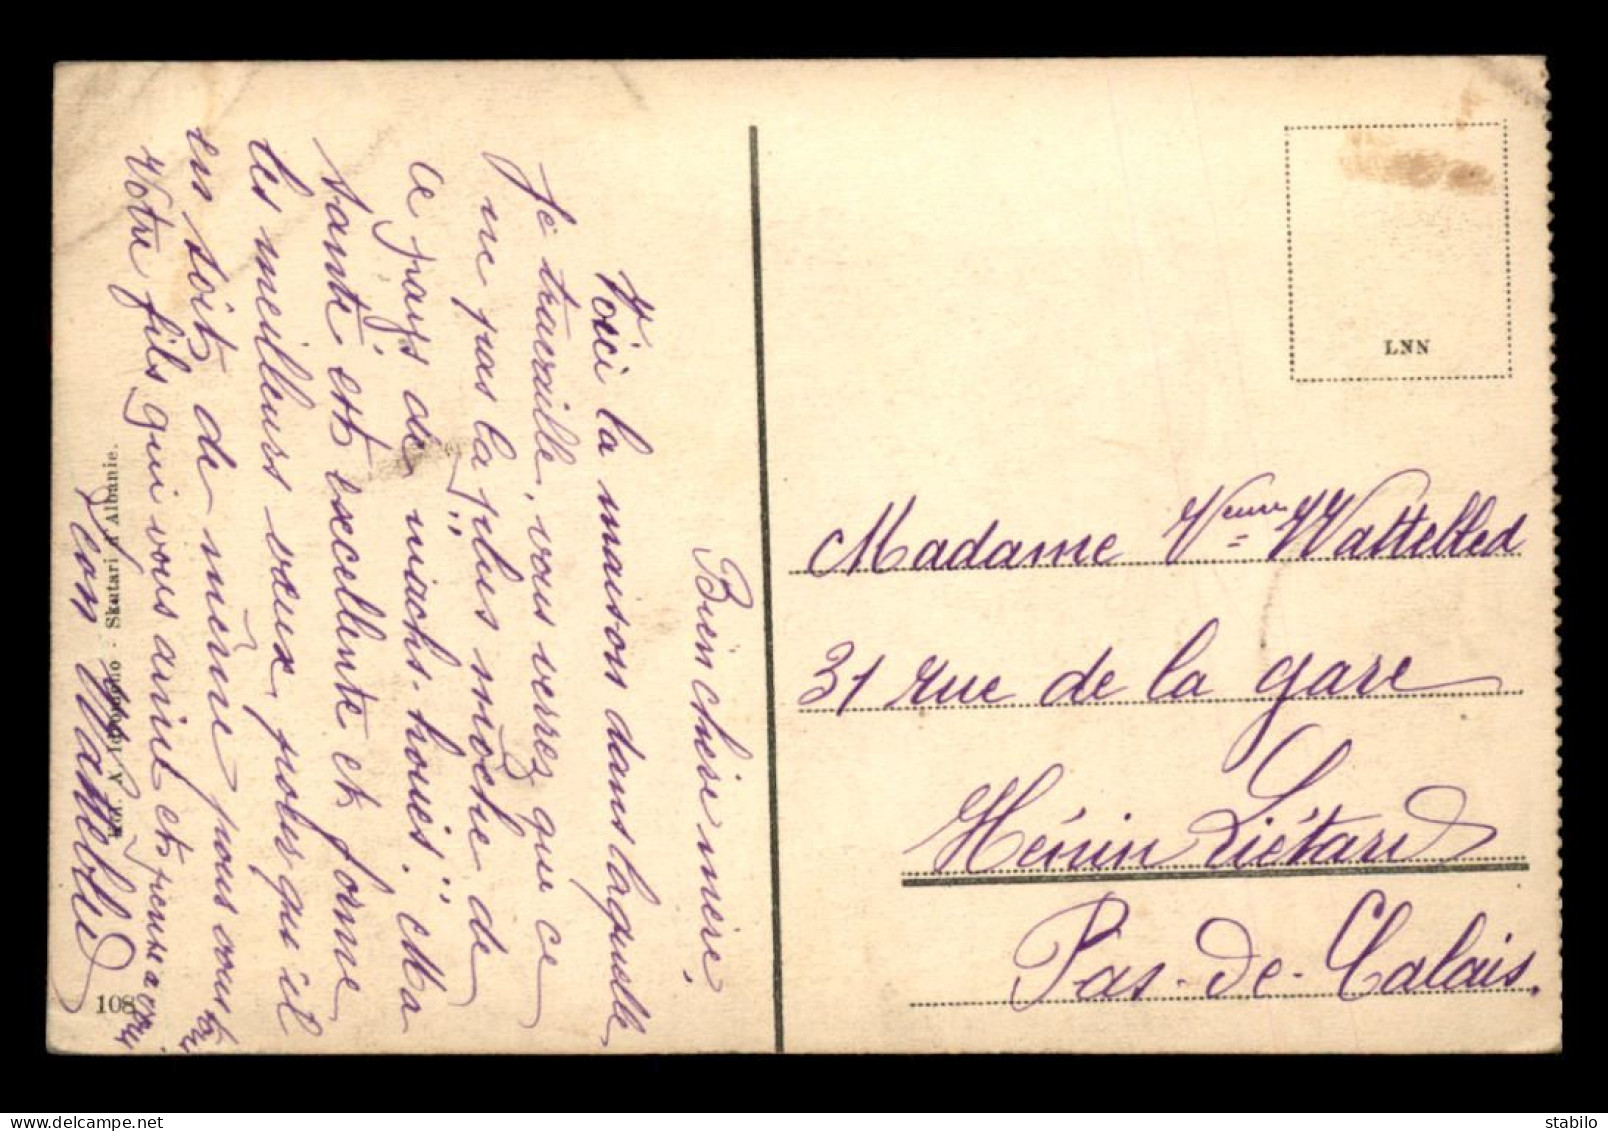 Bien chère mère,
Voici la maison dans laquelle
je travaille, vous verrez que ce
ne pas la plus moche de
ce pays de "niachs-houés". Ma
santé est excellente et forme
les meilleurs vœux pour qu'il
en soit de même pour vous
Votre fils qui vous aime et pense à vous
Léon Wattebled
Skutari d'Albanie.
108
LNN
Madame Veuve Wattebled
31 rue de la gare
Hénin Liétard
Pas-de-Calais.
delcampe.net
stabilo